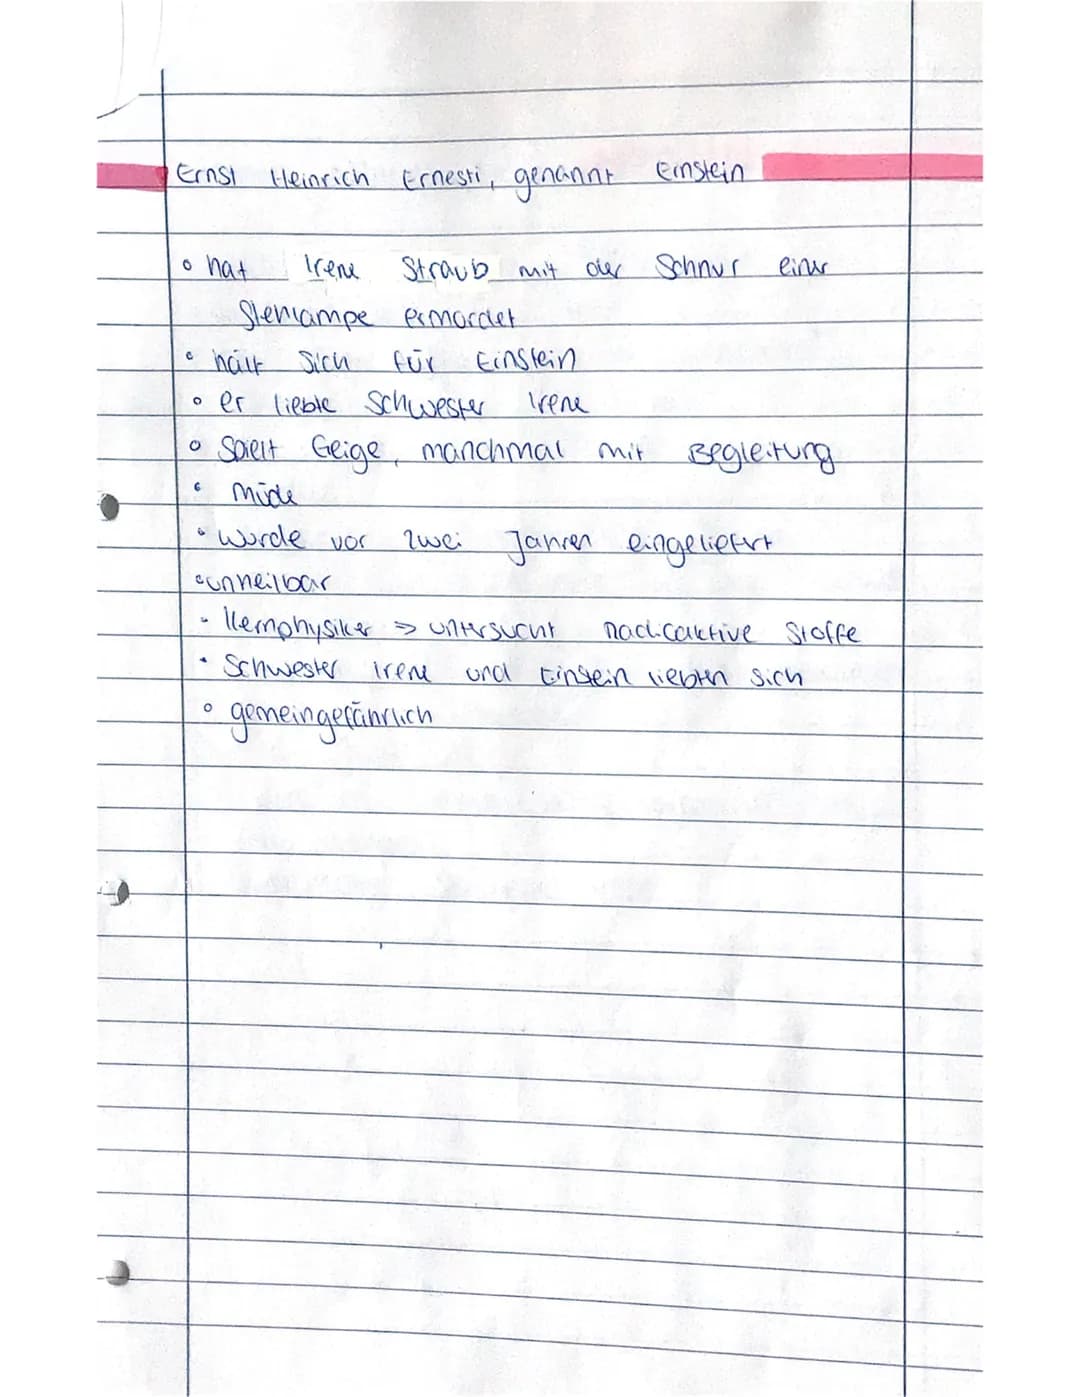 Ernst Heinrich Ernesti, genannt Einstein
• hat Irene Straub mit der Schnur einer
Stehlampe ermordet
• hält sich für Einstein
• er liebte Schwester Irene
• Spielt Geige, manchmal mit Begleitung
• müde
• wurde vor zwei Jahren eingeliefert
• unheilbar
• Kernphysiker => untersucht radioaktive Stoffe
• Schwester Irene und Einstein liebten sich
• gemeingefährlich